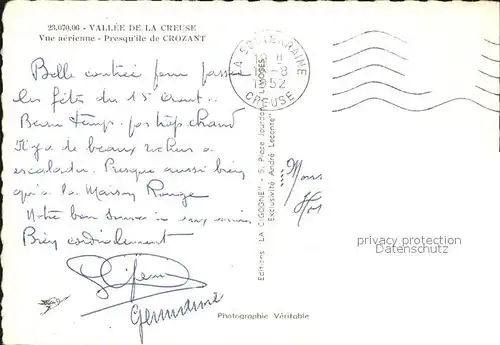 23.070.06 - VALLÉE DE LA CREUSE
Vue aérienne - Presqu'île de CROZANT
Belle contrée pour passer
les fêtes du 15 août..
Beau temps. pas trop chaud
Il y a de beaux rochers à
escalader. Presque aussi bien
qu'à la Maison Rouge
Notre bon
Bien cordialement
Germaine
LA SOUTERRAINE
-8
1952
CREUSE
Editions "LA CIGOGNE" - 5, Place Jourdan - LIMOGES
Exclusivité André Leconte"
Mons
privacy protection
Datenschutz
Photographie Véritable